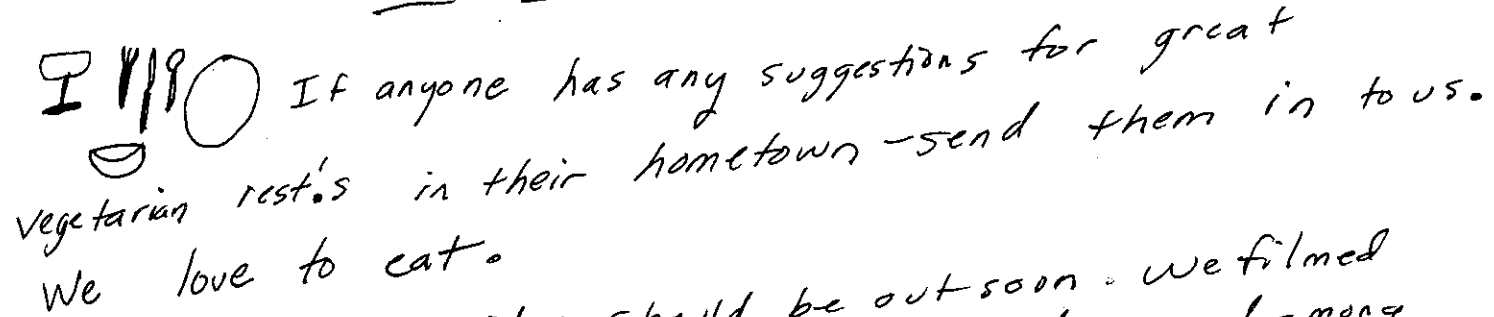 If anyone has any suggestions for great
vegetarian rest.'s in their hometown - send them in to us.
We love to eat.
should be out soon. We filmed